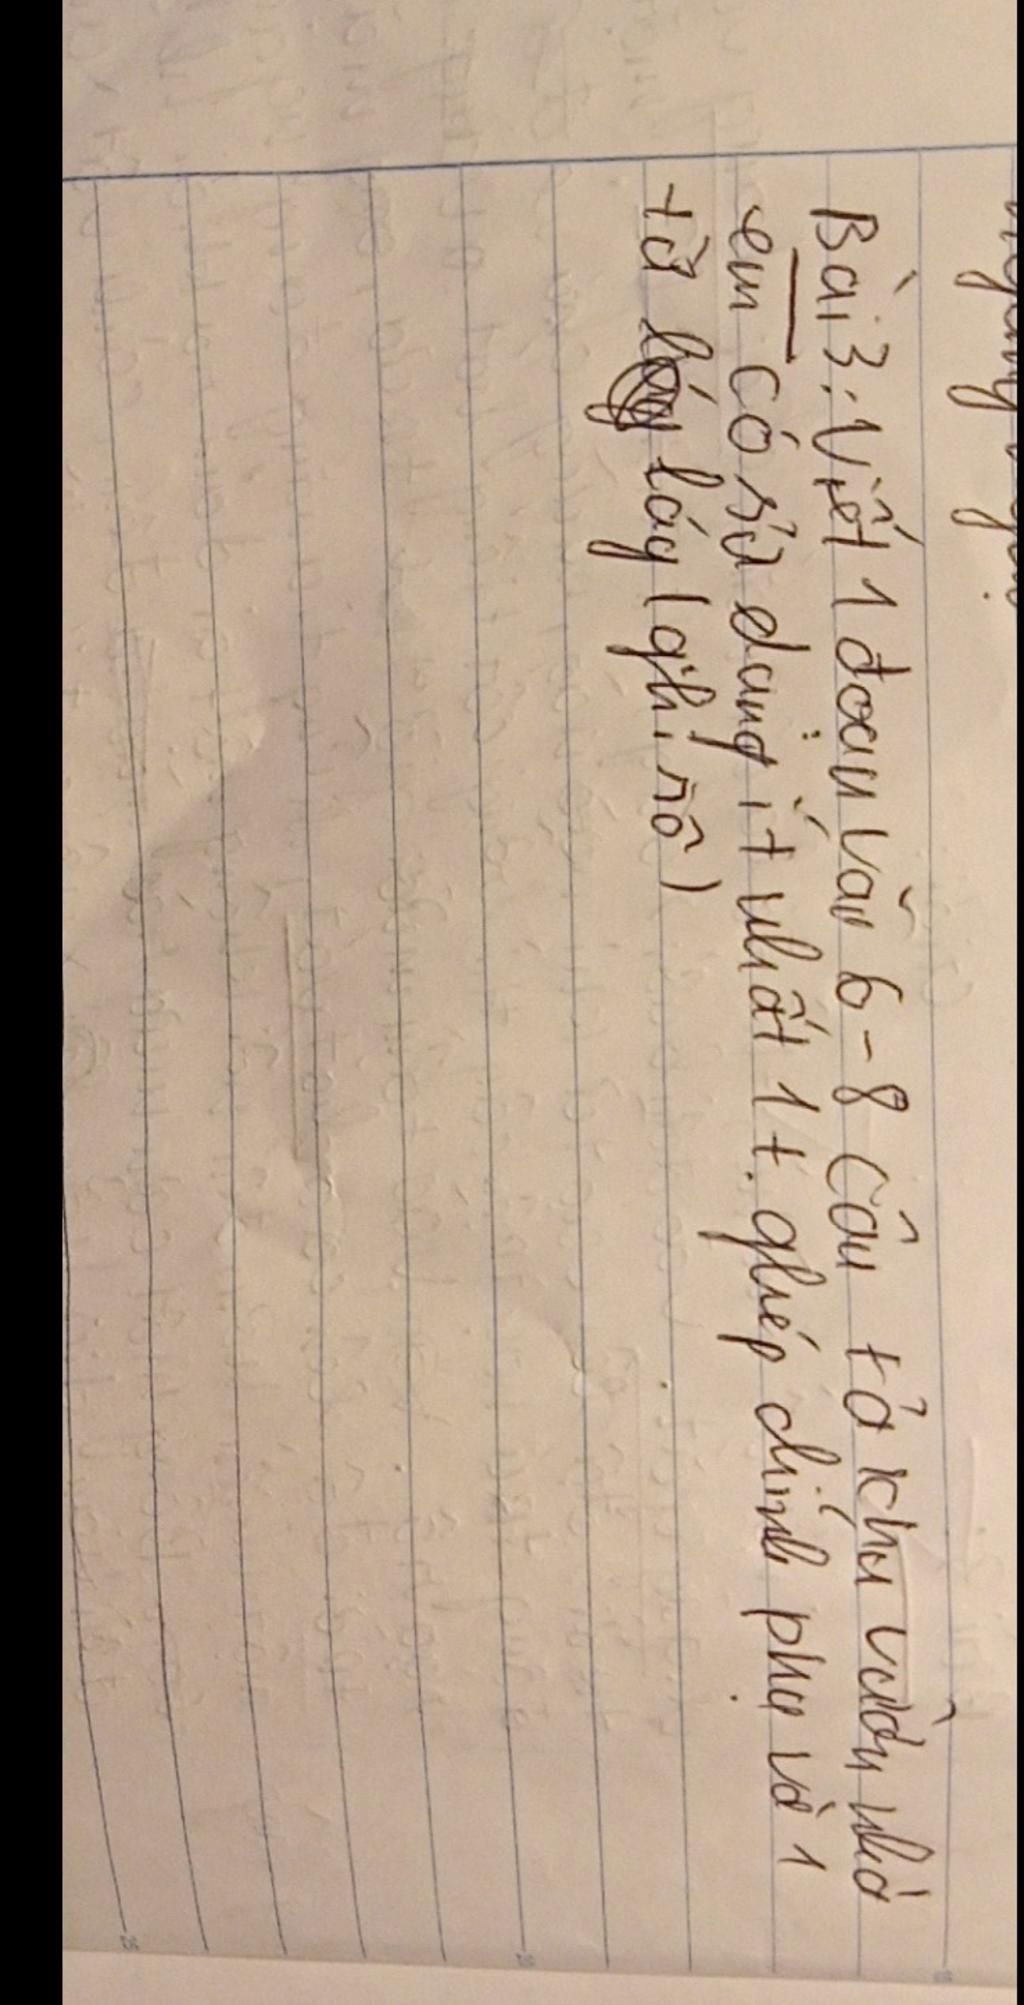 Bài 3: Viết 1 đoạn văn 6-8 câu tả khu vườn nhà
em có sử dụng ít nhất 1 t. ghép chính phụ và 1
từ láy (ghi rõ)